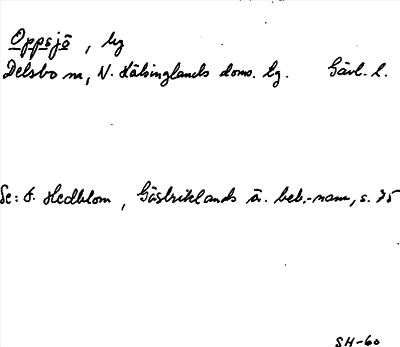 Oppsjö, by
Delsbo sn, N. Hälsinglands doms. tg. Gävl. l.
Se: F. Hedblom, Gästriklands ä. beb.-namn, s. 75
SH-60